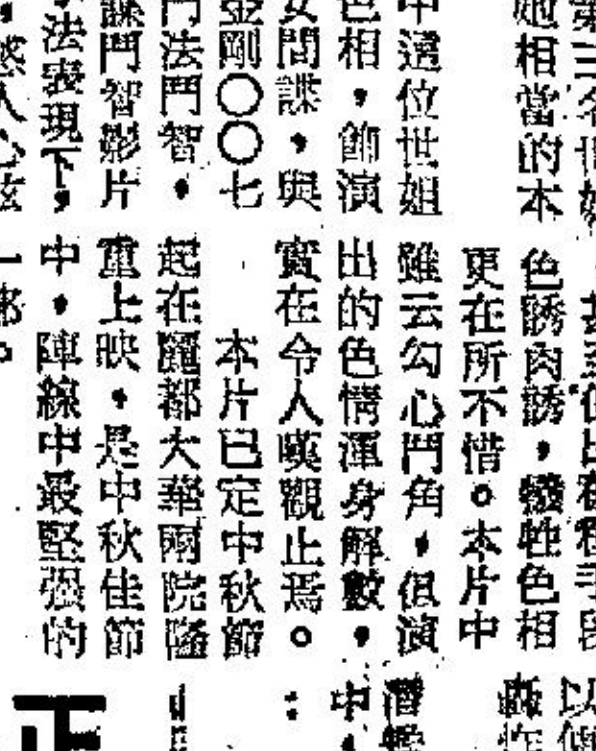 第三名世姐
她相當的本
中這位世姐
色相，飾演
女間諜，與
金剛〇〇七
鬥法鬥智，
諜鬥智影片
法表現下，
人心弦
色誘肉誘，犧牲色相
更在所不惜。本片中
雖云勾心鬥角，但演
出的色情渾身解數，
實在令人嘆觀止焉。
本片已定中秋節
起在麗都大華兩院隆
重上映，是中秋佳節
中，陣線中最堅强的
一部。
以
轟炸
潛
中
正